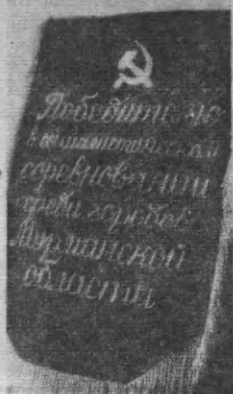 Победителю
в социалистическом
соревновании
среди городов
Мурманской
области